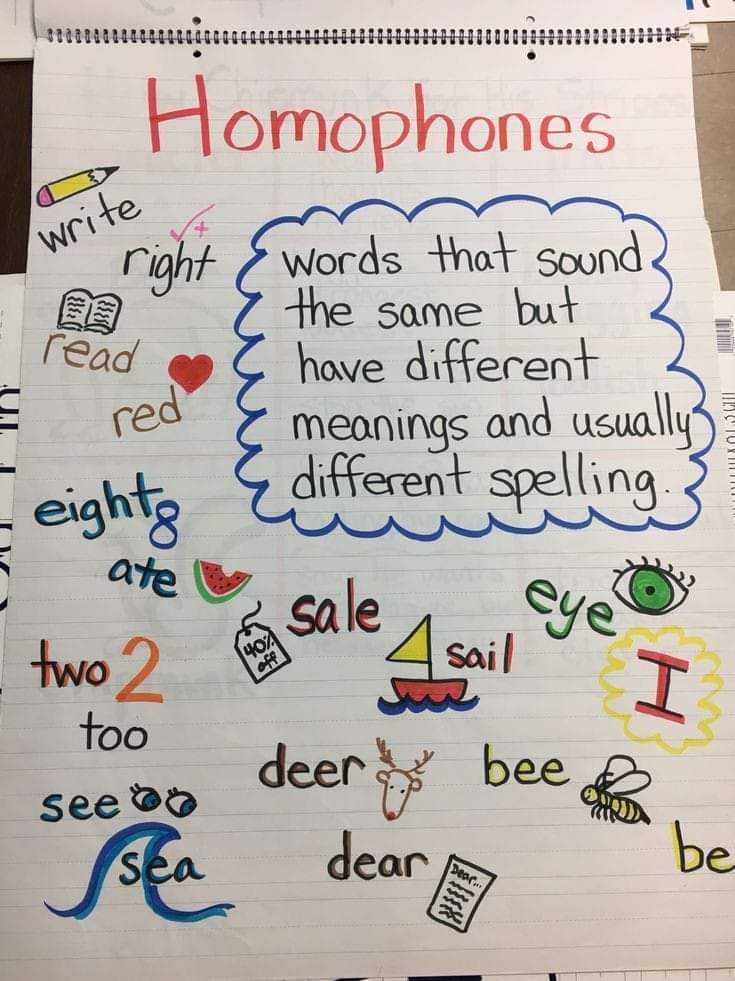 Homophones
write
right
words that sound
the same but
have different
meanings and usually
different spelling.
read
red
eight 8
ate
sale
40% off
sail
eye
I
two 2
too
deer
bee
be
see
sea
dear
Dear...